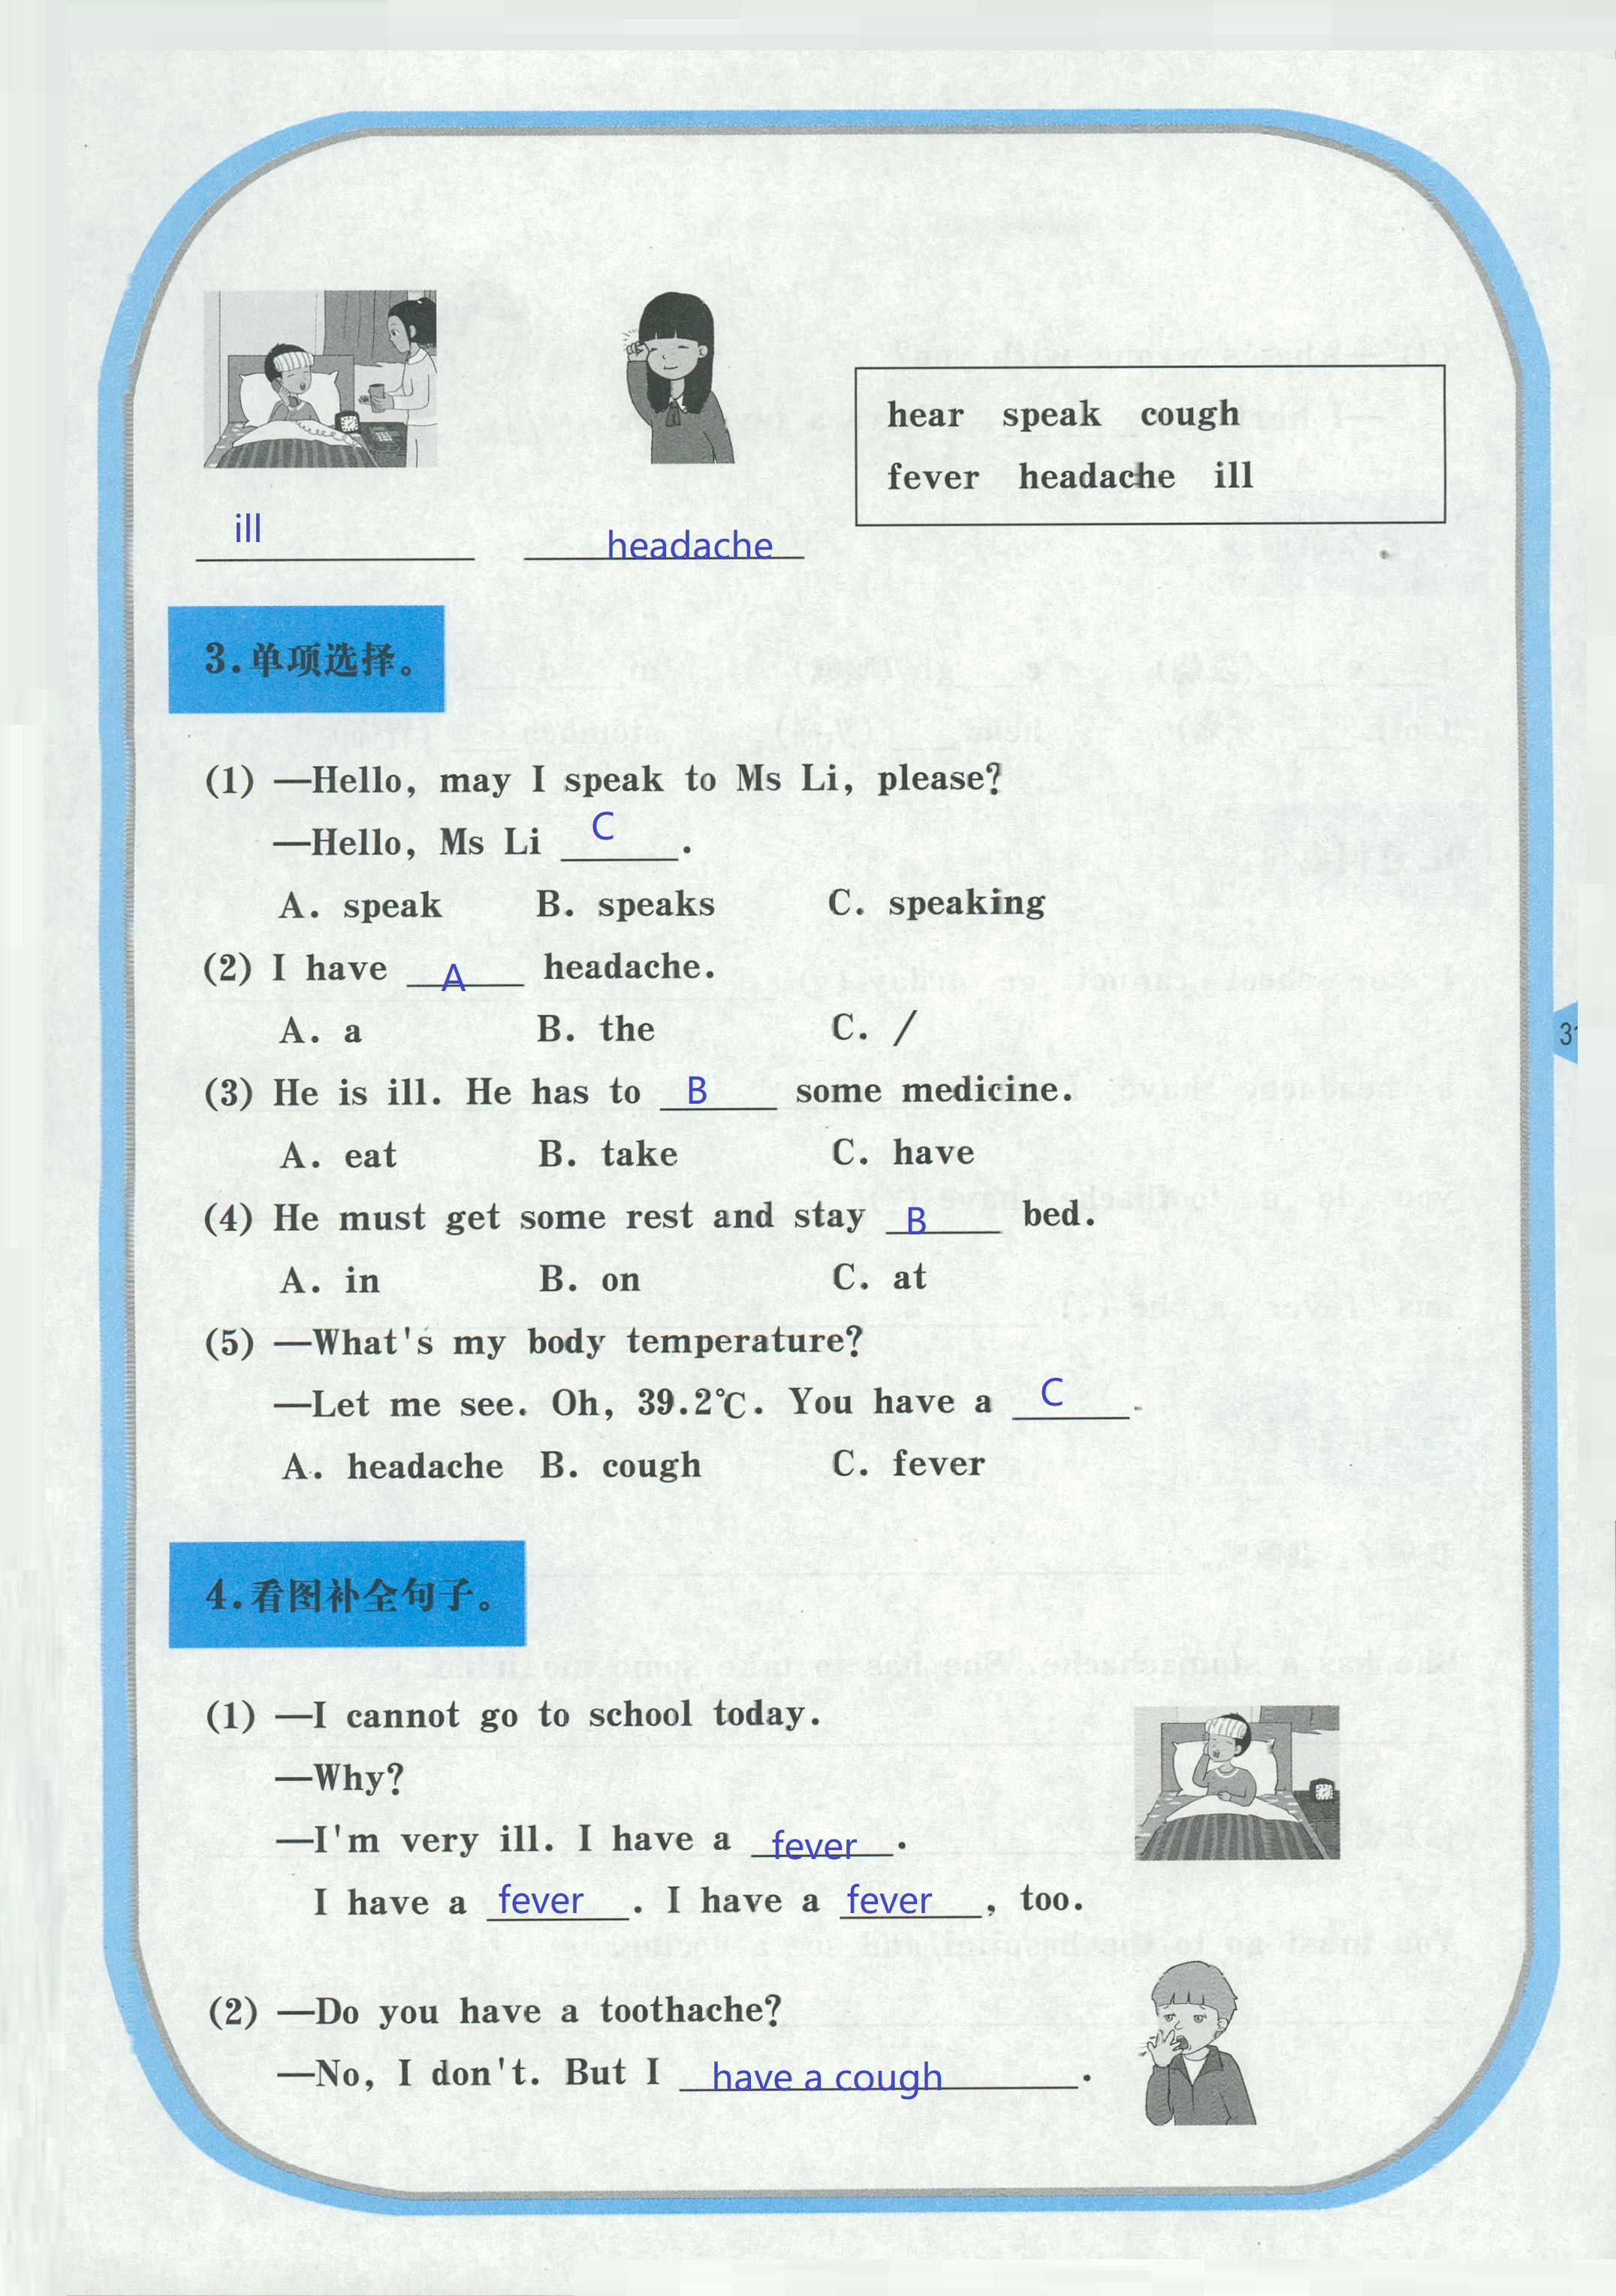 hear speak cough
fever headache ill
ill headache
3.单项选择。
(1) —Hello, may I speak to Ms Li, please?
—Hello, Ms Li C .
A. speak B. speaks C. speaking
(2) I have A headache.
A. a B. the C. /
(3) He is ill. He has to B some medicine.
A. eat B. take C. have
(4) He must get some rest and stay B bed.
A. in B. on C. at
(5) —What's my body temperature?
—Let me see. Oh, 39.2℃. You have a C .
A. headache B. cough C. fever
31
4.看图补全句子。
(1) —I cannot go to school today.
—Why?
—I'm very ill. I have a fever .
I have a fever . I have a fever , too.
(2) —Do you have a toothache?
—No, I don't. But I have a cough .